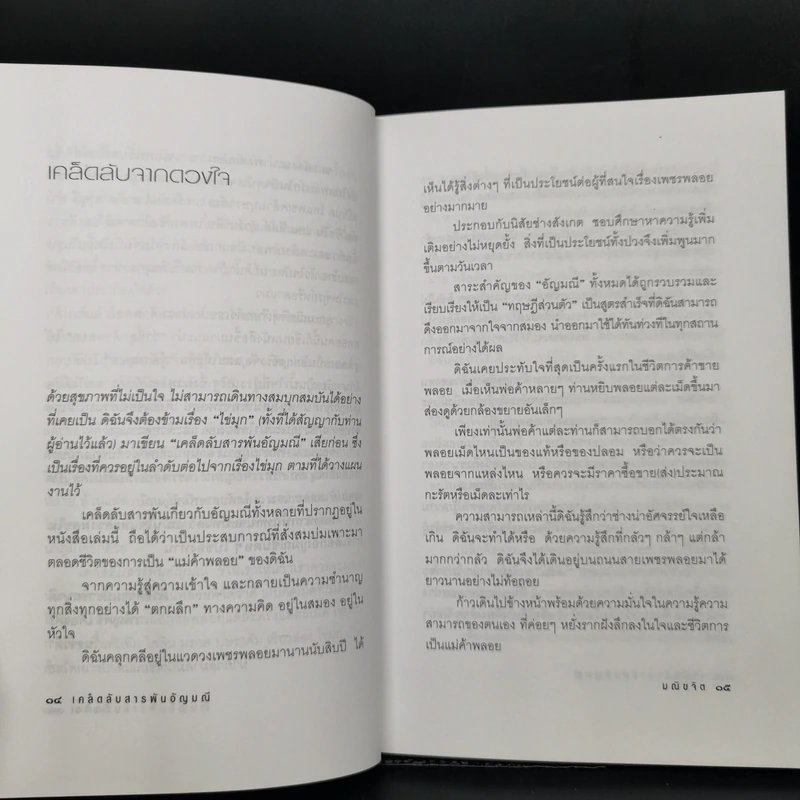 เคล็ดลับจากดวงใจ
ด้วยสุขภาพที่ไม่เป็นใจ ไม่สามารถเดินทางสมบุกสมบันได้อย่าง
ที่เคยเป็น ดิฉันจึงต้องข้ามเรื่อง “ไข่มุก” (ทั้งที่ได้สัญญากับท่าน
ผู้อ่านไว้แล้ว) มาเขียน “เคล็ดลับสารพันอัญมณี” เสียก่อน ซึ่ง
เป็นเรื่องที่ควรอยู่ในลำดับต่อไปจากเรื่องไข่มุก ตามที่ได้วางแผน
งานไว้
เคล็ดลับสารพันเกี่ยวกับอัญมณีทั้งหลายที่ปรากฏอยู่ใน
หนังสือเล่มนี้ ถือได้ว่าเป็นประสบการณ์ที่สั่งสมบ่มเพาะมา
ตลอดชีวิตของการเป็น “แม่ค้าพลอย” ของดิฉัน
จากความรู้สู่ความเข้าใจ และกลายเป็นความชำนาญ
ทุกสิ่งทุกอย่างได้ “ตกผลึก” ทางความคิด อยู่ในสมอง อยู่ใน
หัวใจ
ดิฉันคลุกคลีอยู่ในแวดวงเพชรพลอยมานานนับสิบปี ได้
๑๔ เคล็ดลับสารพันอัญมณี
เห็นได้รู้สิ่งต่างๆ ที่เป็นประโยชน์ต่อผู้ที่สนใจเรื่องเพชรพลอย
อย่างมากมาย
ประกอบกับนิสัยช่างสังเกต ชอบศึกษาหาความรู้เพิ่ม
เติมอย่างไม่หยุดยั้ง สิ่งที่เป็นประโยชน์ทั้งปวงจึงเพิ่มพูนมาก
ขึ้นตามวันเวลา
สาระสำคัญของ “อัญมณี” ทั้งหมดได้ถูกรวบรวมและ
เรียบเรียงให้เป็น “ทฤษฎีส่วนตัว” เป็นสูตรสำเร็จที่ดิฉันสามารถ
ดึงออกมาจากใจจากสมอง นำออกมาใช้ได้ทันท่วงทีในทุกสถาน
การณ์อย่างได้ผล
ดิฉันเคยประทับใจที่สุดเป็นครั้งแรกในชีวิตการค้าขาย
พลอย เมื่อเห็นพ่อค้าหลายๆ ท่านหยิบพลอยแต่ละเม็ดขึ้นมา
ส่องดูด้วยกล้องขยายอันเล็กๆ
เพียงเท่านั้นพ่อค้าแต่ละท่านก็สามารถบอกได้ตรงกันว่า
พลอยเม็ดไหนเป็นของแท้หรือของปลอม หรือว่าควรจะเป็น
พลอยจากแหล่งไหน หรือควรจะมีราคาซื้อขาย(ส่ง)ประมาณ
กะรัตหรือเม็ดละเท่าไร
ความสามารถเหล่านี้ดิฉันรู้สึกว่าช่างน่าอัศจรรย์ใจเหลือ
เกิน ดิฉันจะทำได้หรือ ด้วยความรู้สึกที่กลัวๆ กล้าๆ แต่กล้า
มากกว่ากลัว ดิฉันจึงได้เดินอยู่บนถนนสายเพชรพลอยมาได้
ยาวนานอย่างไม่ท้อถอย
ก้าวเดินไปข้างหน้าพร้อมด้วยความมั่นใจในความรู้ความ
สามารถของตนเอง ที่ค่อยๆ หยั่งรากฝังลึกลงในใจและชีวิตการ
เป็นแม่ค้าพลอย
มณิขจิต ๑๕